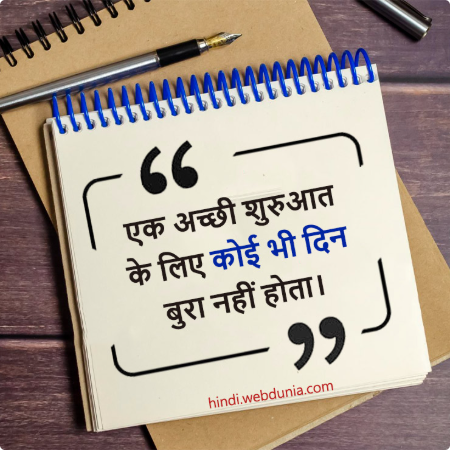 एक अच्छी शुरुआत
के लिए कोई भी दिन
बुरा नहीं होता।
hindi.webdunia.com